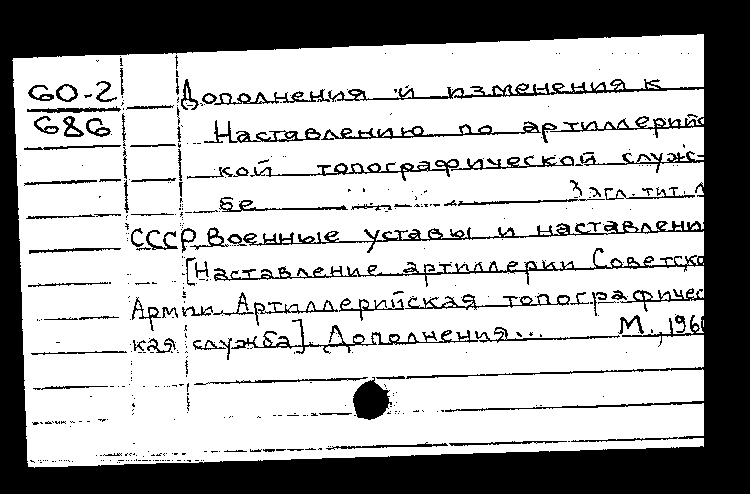 60-2
686
Дополнения и изменения к
Наставлению по артиллерийс
кой топографической служ-
бе Загл. тит. л
СССР. Военные уставы и наставлени
[Наставление артиллерии Советско
Армии. Артиллерийская топографичес
кая служба]. Дополнения... М., 1960